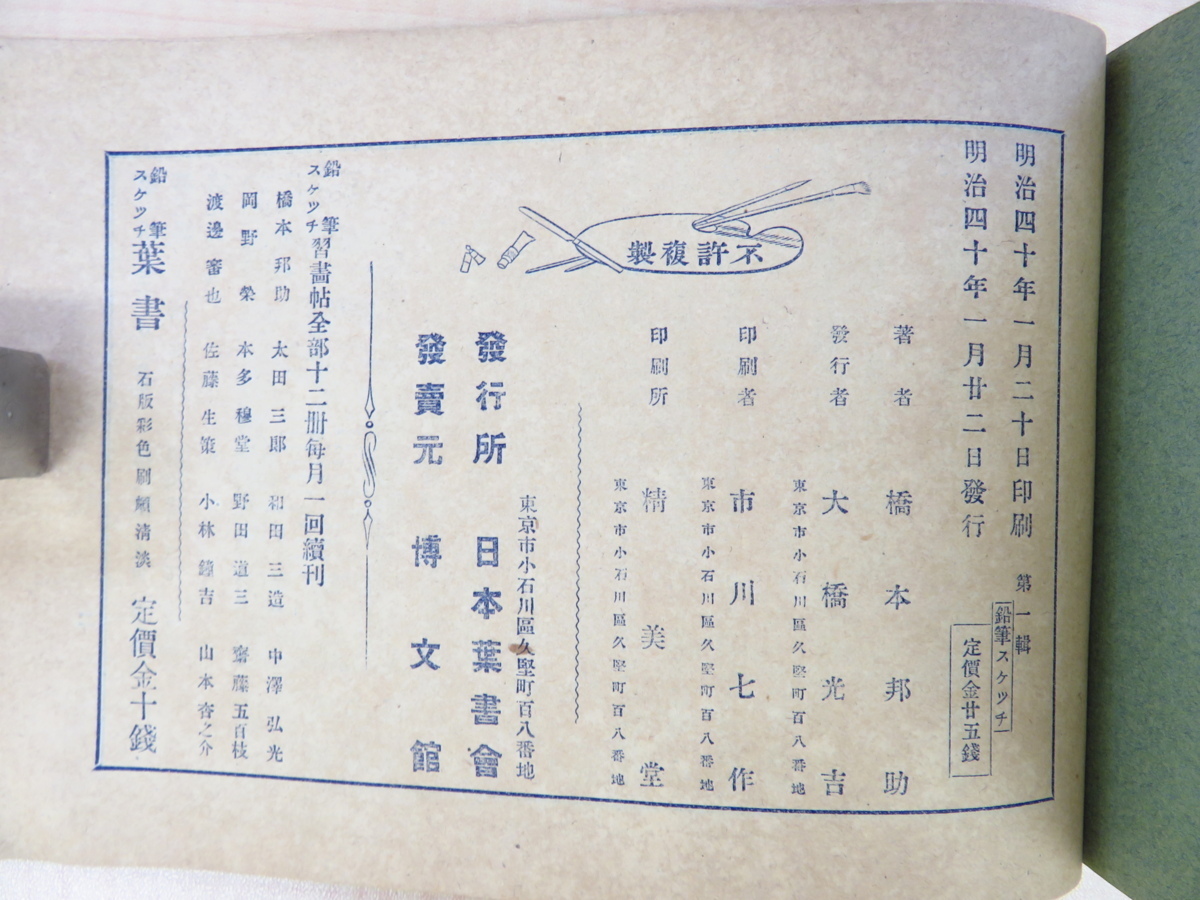 明治四十年一月二十日印刷
明治四十年一月廿二日發行
第一輯
鉛筆スケツチ
定價金廿五錢
不許複製
著者 橋本邦助
發行者 大橋光吉
東京市小石川區久堅町百八番地
印刷者 市川七作
東京市小石川區久堅町百八番地
印刷所 精美堂
東京市小石川區久堅町百八番地
東京市小石川區久堅町百八番地
發行所 日本葉書會
發賣元 博文館
鉛筆スケツチ習畵帖全部十二册每月一回續刊
橋本邦助 太田三郎 和田三造 中澤弘光
岡野榮 本多穆堂 野田道三 齋藤五百枝
渡邊審也 佐藤生策 小林鐘吉 山本杳之介
鉛筆スケツチ葉書 石版彩色刷頗淸淡 定價金十錢